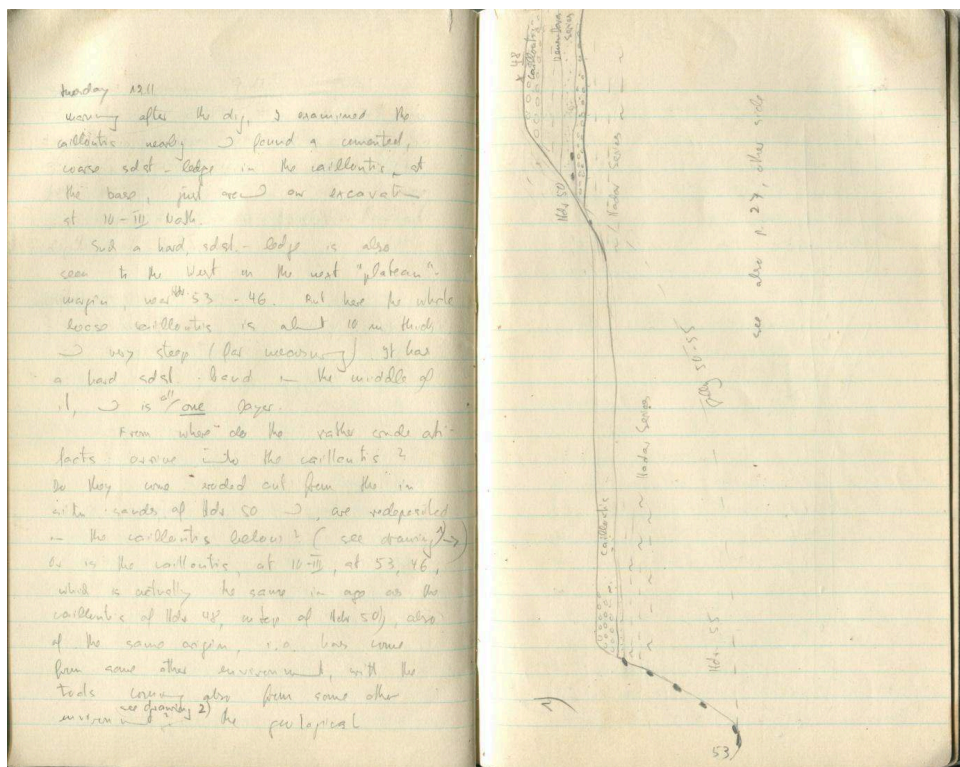 morning after the dig, I examined the
cailloutis nearby found a cemented,
coarse sdst - ledge in the cailloutis, at
the base, just our excavat
at 10-III North.
Such a hard, sdst. - ledge is also
seen to the West on the next "plateau"-
margin, near Hdr 53 - 46. But here the whole
loose cailloutis is about 10 m thick
very steep (for measuring) It has
a hard sdst. band in the middle of
it, is all one layer.
From where do the rather crude arti-
facts arrive into the cailloutis?
Do they come eroded out from the in
situ sands of Hdr 50, are redeposited
in the cailloutis below? (see drawing 1 →)
Or is the cailloutis, at 10-III, at 53, 46,
which is actually the same in age as the
cailloutis of Hdr 48, on top of Hdr 50), also
of the same origin, i.e. has come
from some other environment, with the
tools coming also from some other
see drawing 2)
the geological
x 48
cailloutis
series
Hdr 50
Hadar Series
see also p. 27, other side
50-55
Hadar Series
cailloutis
Hdr 55
1)
53